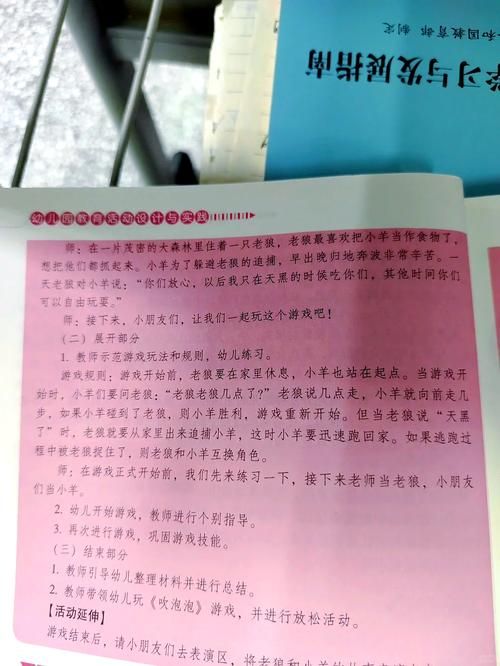 和国教育部 制定
学习与发展指南
幼儿园教育活动设计与实践
师：在一片茂密的大森林里住着一只老狼，老狼最喜欢把小羊当作食物了，
想把他们都抓起来。小羊为了躲避老狼的追捕，早出晚归地奔波非常辛苦。一
天老狼对小羊说：“你们放心，以后我只在天黑的时候吃你们，其他时间你们
可以自由玩耍。”
师：接下来，小朋友们，让我们一起玩这个游戏吧！
（二）展开部分
1. 教师示范游戏玩法和规则，幼儿练习。
游戏规则：游戏开始前，老狼要在家里休息，小羊也站在起点。当游戏开
始时，小羊们要问老狼：“老狼老狼几点了？”老狼说几点走，小羊就向前走几
步，如果小羊碰到了老狼，则小羊胜利，游戏重新开始。但当老狼说“天黑
了”时，老狼就要从家里出来追捕小羊，这时小羊要迅速跑回家。如果逃跑过
程中被老狼捉住了，则老狼和小羊互换角色。
师：在游戏正式开始前，我们先来练习一下，接下来老师当老狼，小朋友
们当小羊。
2. 幼儿开始游戏，教师进行个别指导。
3. 再次进行游戏，巩固游戏技能。
（三）结束部分
1. 教师引导幼儿整理材料并进行总结。
2. 教师带领幼儿玩《吹泡泡》游戏，并进行放松活动。
【活动延伸】
游戏结束后，请小朋友们去表演区，将老狼和小羊的故事表演